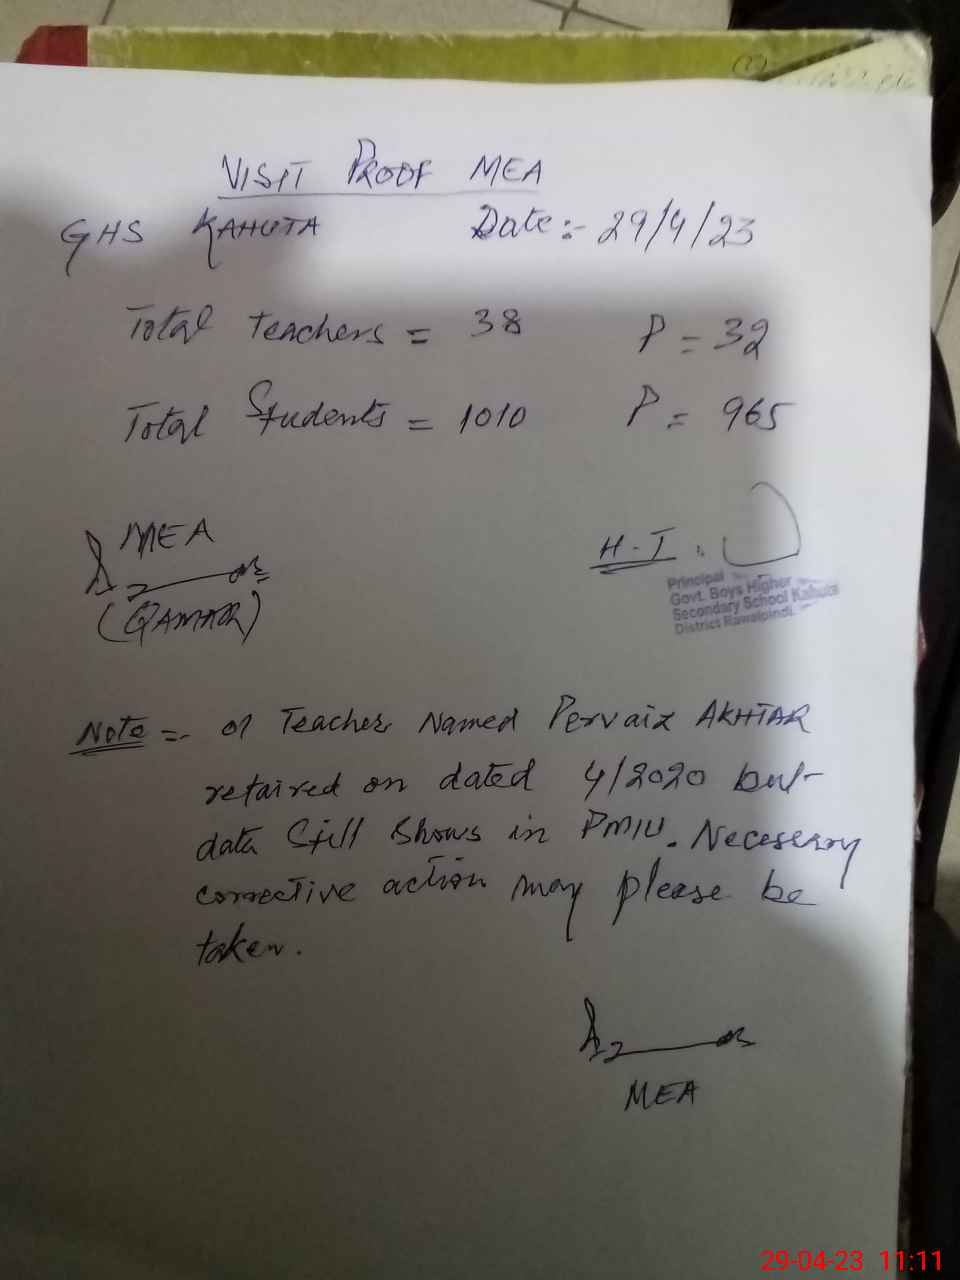 VISIT PROOF MEA
GHS KAHUTA Date:- 29/4/23
Total Teachers = 38 P = 32
Total Students = 1010 P = 965
MEA
(QAMAR)
H-I
Principal
Govt. Boys Higher
Secondary School Kahuta
District Rawalpindi
Note =- 01 Teacher Named Pervaiz AKHTAR
retaired on dated 4/2020 but
data Still Shows in PMIU. Necessary
corrective action may please be
taken.
MEA
29-04-23 11:11